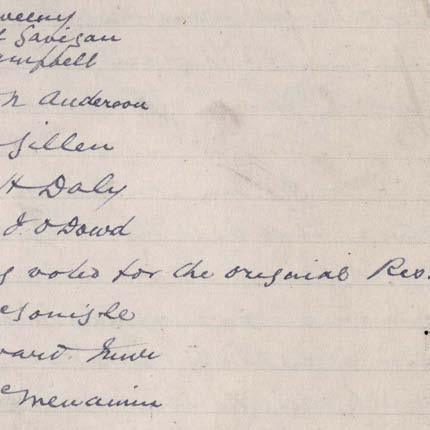 weeny
t Gavigan
ampbell
n Anderson
Gillen
H Daly
J. O Dowd
g voted for the original Res.
cGonigle
wart
c Menamin